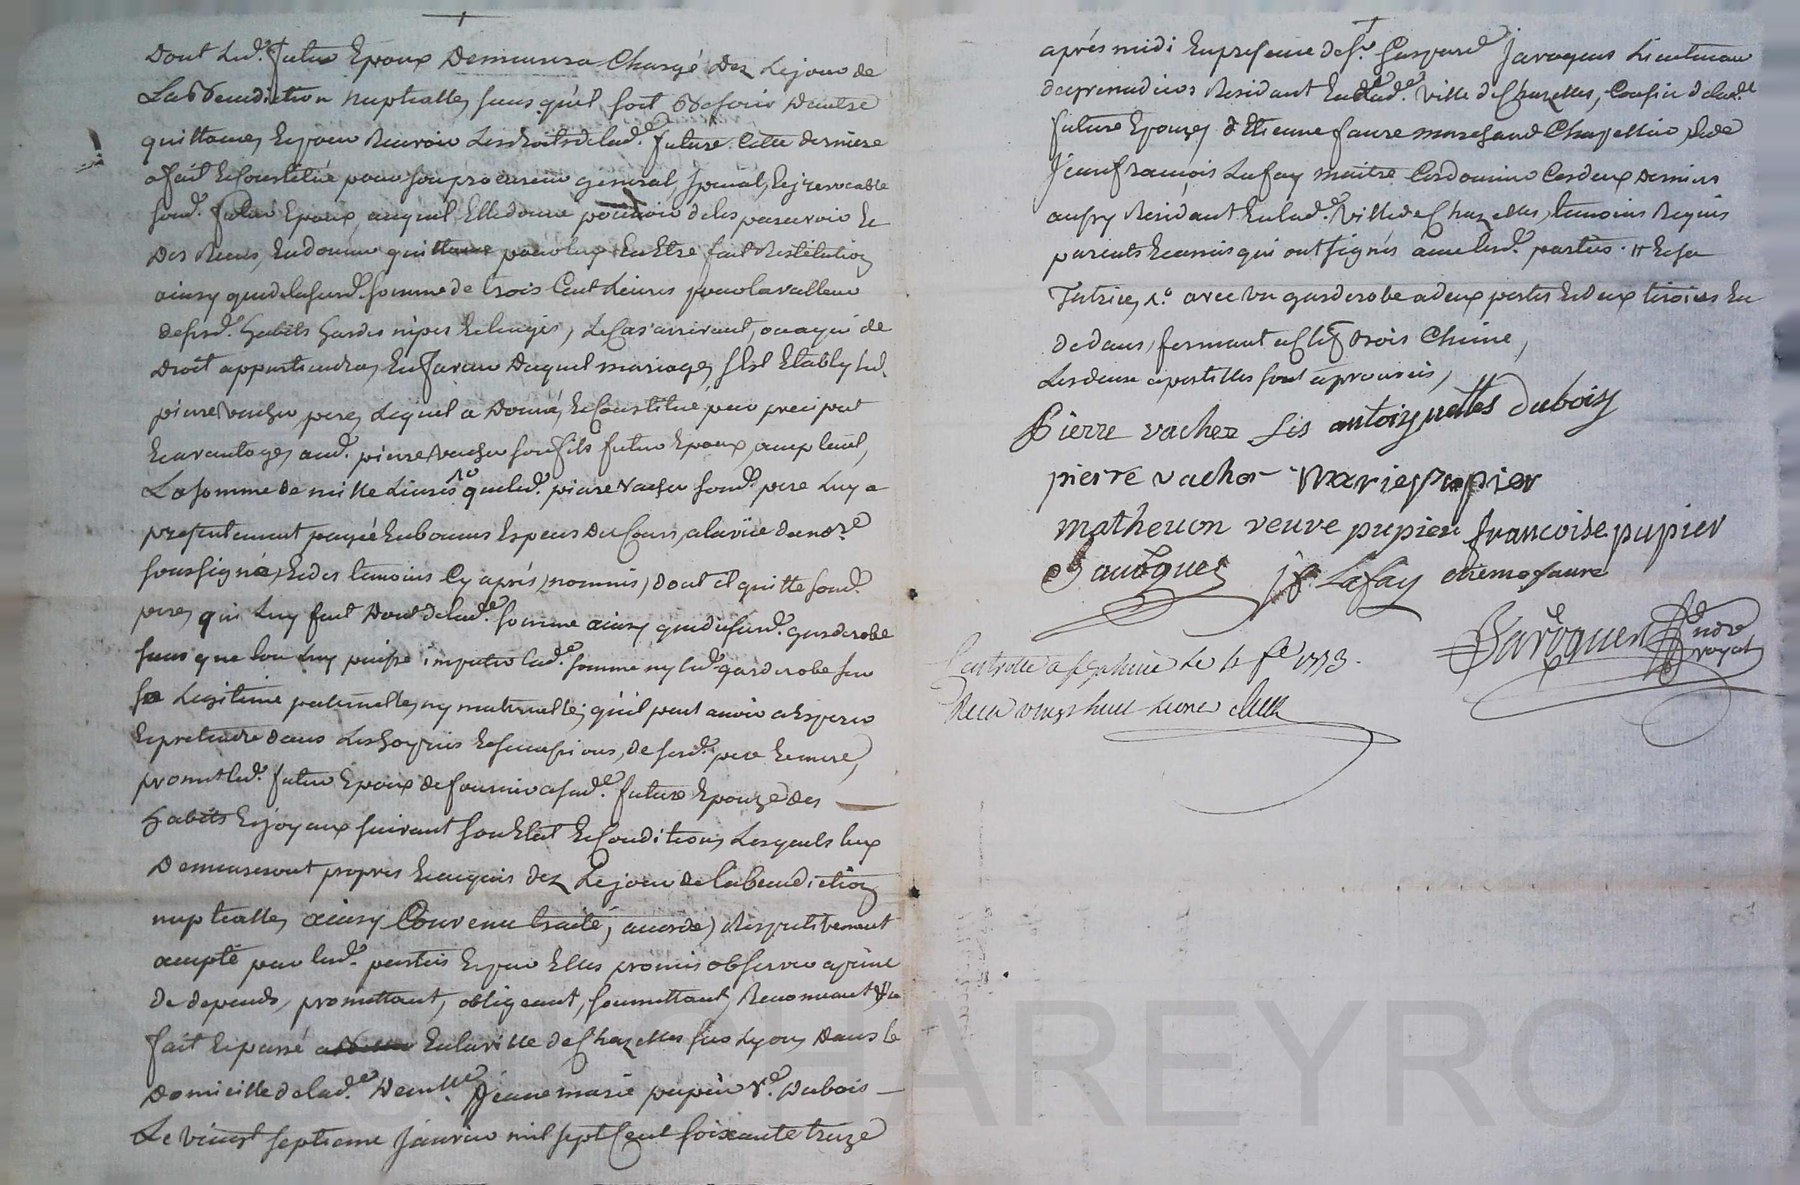 Dont Lud. futur Epoux Demeurera Chargé Dez Le jour de
La Benediction nuptialle, sans qu'il soit Besoin Dautre
quittance, Et pour Recevoir Les droits de lad.e future Cette derniere
a fait Et Constitué pour son procureur general, special, Et irrevocable
sond. futur Epoux auquel Elle donne pouvoir de les percevoir Et
Des Reçus, En donner quittance pour luy En Etre fait Restitution
ainsy que de la susd. somme de trois Cent Livres pour la valleur
desd. habits hardes nipes Et linges, Le Cas arrivant, ou a qui de
Droit appartiendra, En faveur Duquel mariage, s'Est Etably led.
pierre vacher pere, Lequel a Donné, Et Constitué par preciput
Et avantage, aud. pierre vacher son fils futur Epoux acceptant,
La somme de mille Livres 1o que led. pierre vacher sond. pere Luy a
presentement payée En bonnes Especes Du Cours, a la vüe du no.re
soussigné, Et des temoins Cy aprés, nommés, Dont il quitte sond.
pere, qui Luy fait Don de lad.e somme ainsy que du susd. garderobe
sans que l'on Luy puisse imputer lad.e somme ny led. garderobe sur
sa Legitime paternelle, ny maternelle, qu'il peut avoir a Esperer
Et pretendre dans Les hoyries Et successions, de sesd. pere Et mere,
promet led. futur Epoux de fournir a sad.e future Epouze des
habits Et joyaux suivant son Etat Et Condition, Lesquels luy
Demeureront propres Et acquis dez Le jour de la benediction
nuptialle, ainsy Convenu traité, accordé, Respectivement
accepté par lesd. parties Et par Elles promis observer a peine
de depends, promettant, obligeant, soumettant, Renonceant &a
fait Et passé En la ville de Chazelles sus Lyon, Dans le
Domicille de lad.e Dem.lle Jeanne marie pupier v.e Dubois
Le vingt septieme Janvier mil sept Cent soixante treize
aprés midi En presence de s.r Gaspard Javogues Lieutenan
Residant En lad.e ville de Chazelles, Cousin de lad.e
future Epouze, d'Etienne faure marchand Chapellier, Et de
Jean françois Lafay maitre Cordonnier Ces deux Derniers
aussy Residant En lad.e ville de Chazelles, temoins Requis
parents Et amis qui ont signés avec lesd. parties. Et la
1o. avec un garderobe a deux portes Et deux tiroirs En
dedans, fermant a Clef Bois Chêne,
Les deux apostilles sont aprouvées,
Pierre vacher fis antoinettes duboiy
pierre vacher Marie pupier
matheuon veuve pupier francoise pupier
Javogues J f. Lafay etienne faure
Javogues
Controllé a le 4 f.er 1773.
Reçu vingt huit Livres